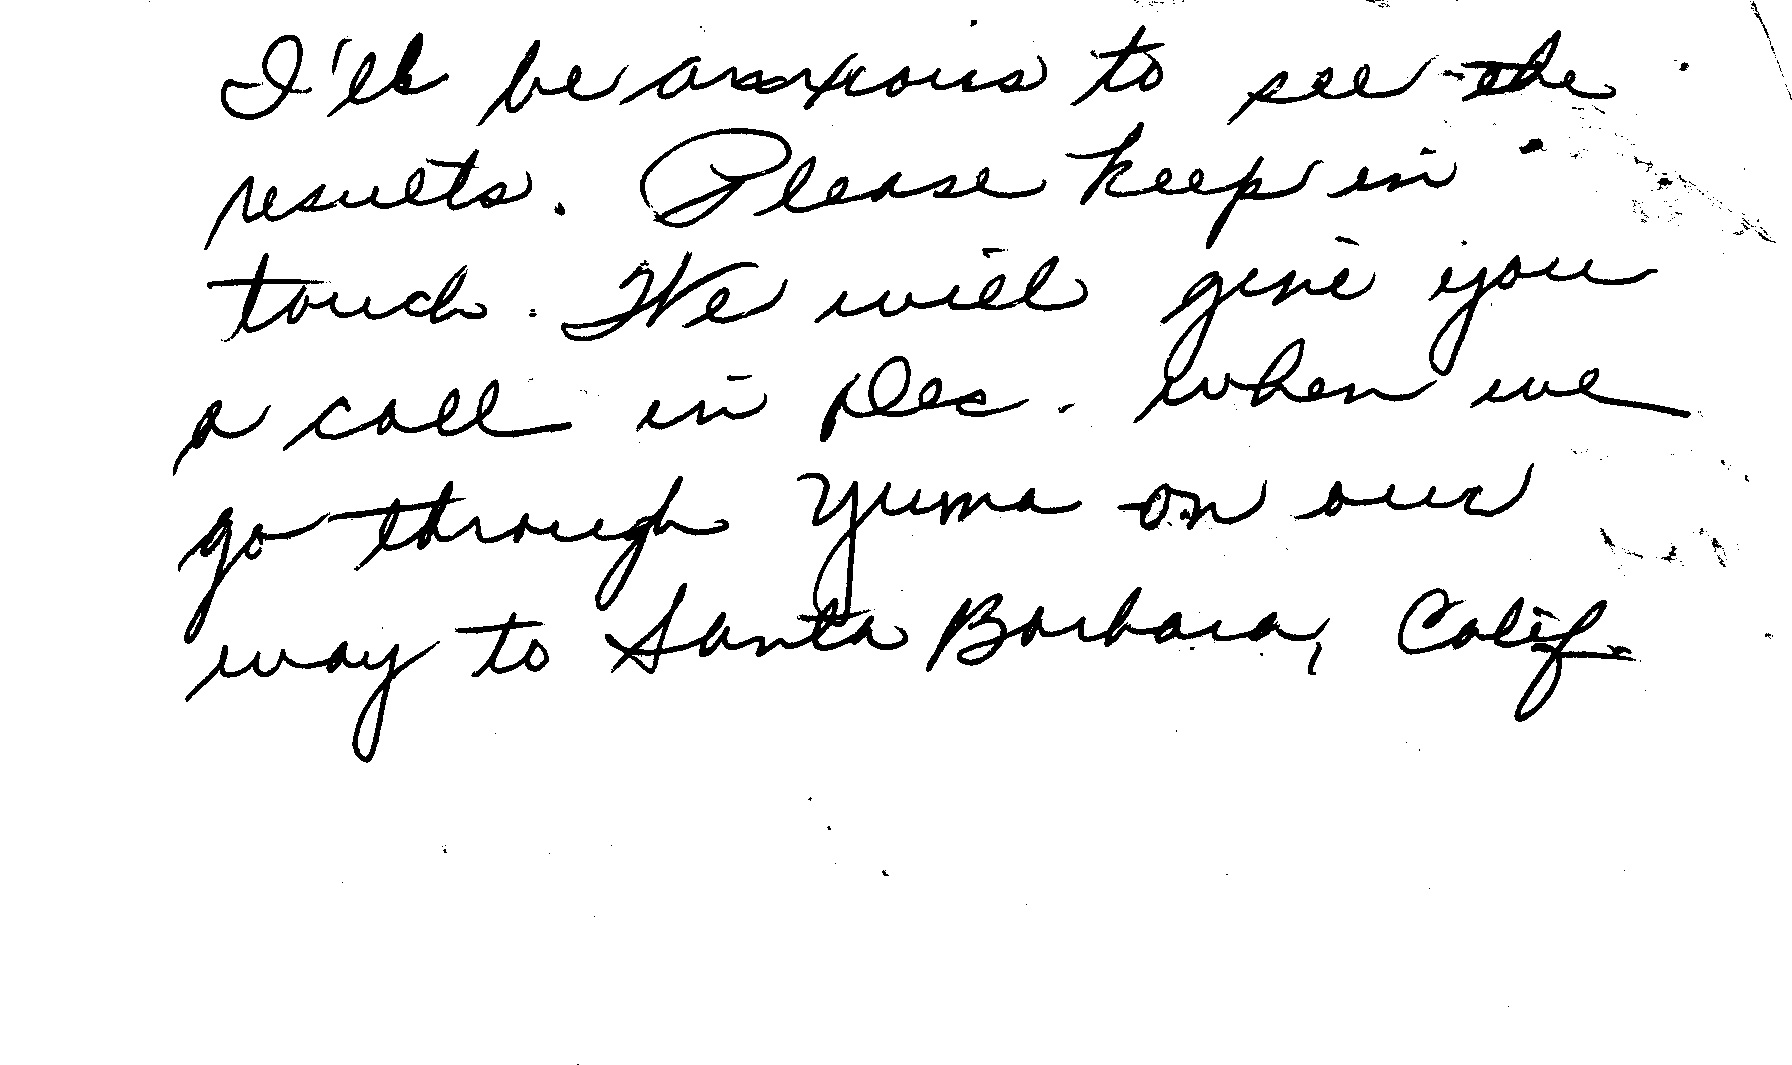 I'll be anxious to see the
results. Please keep in
touch. We will give you
a call in Dec. when we
go through Yuma on our
way to Santa Barbara, Calif.